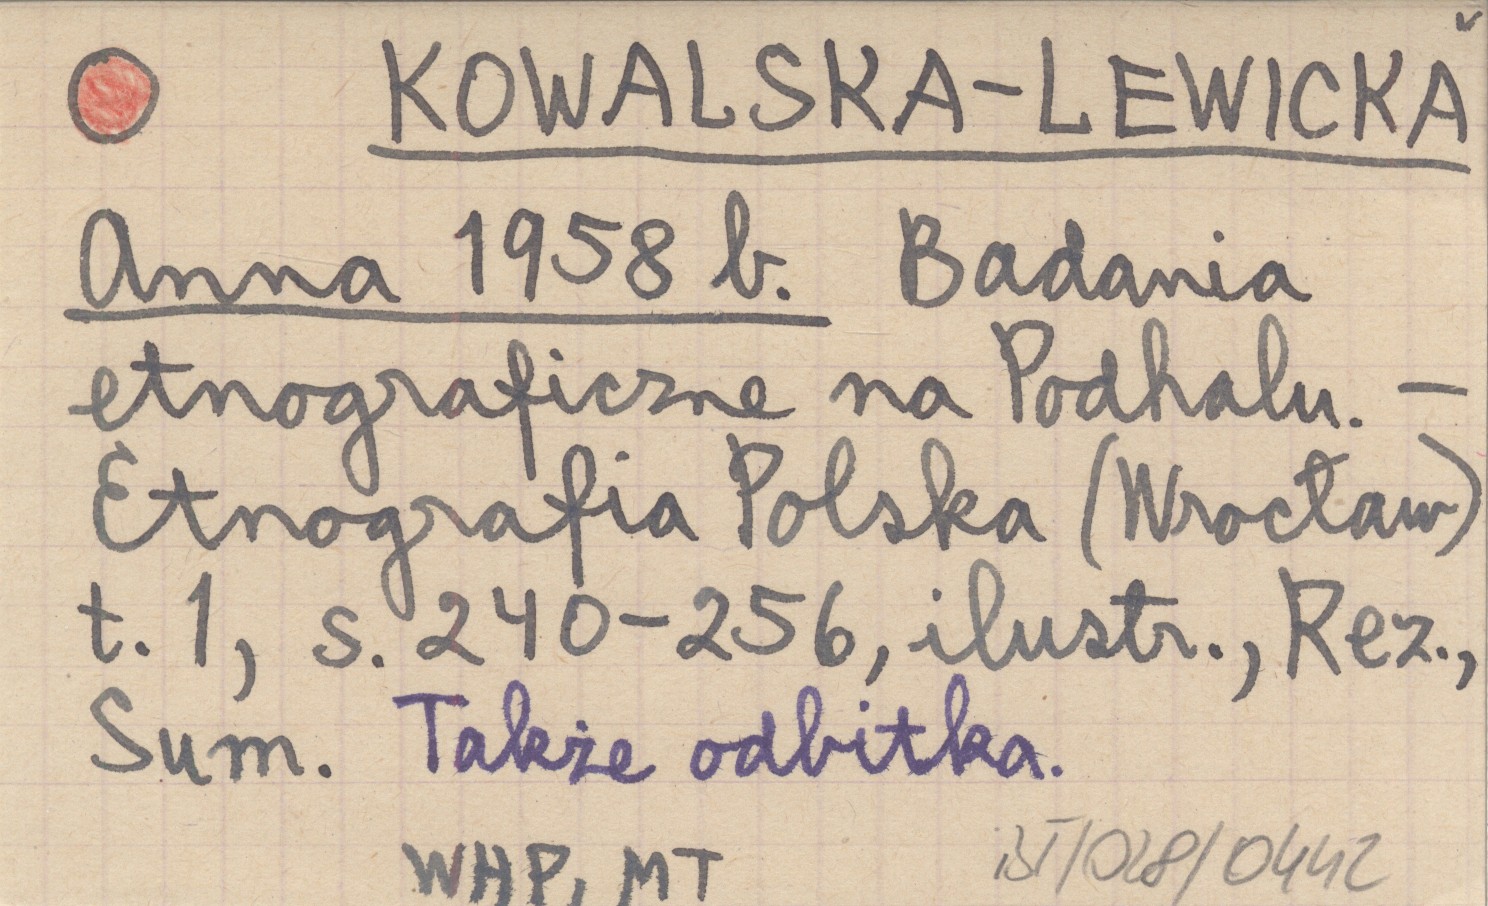 KOWALSKA-LEWICKA
Anna 1958 b. Badania
etnograficzne na Podhalu. –
Etnografia Polska (Wrocław)
t. 1, s. 240-256, ilustr., Rez.,
Sum. Także odbitka.
WHP, MT